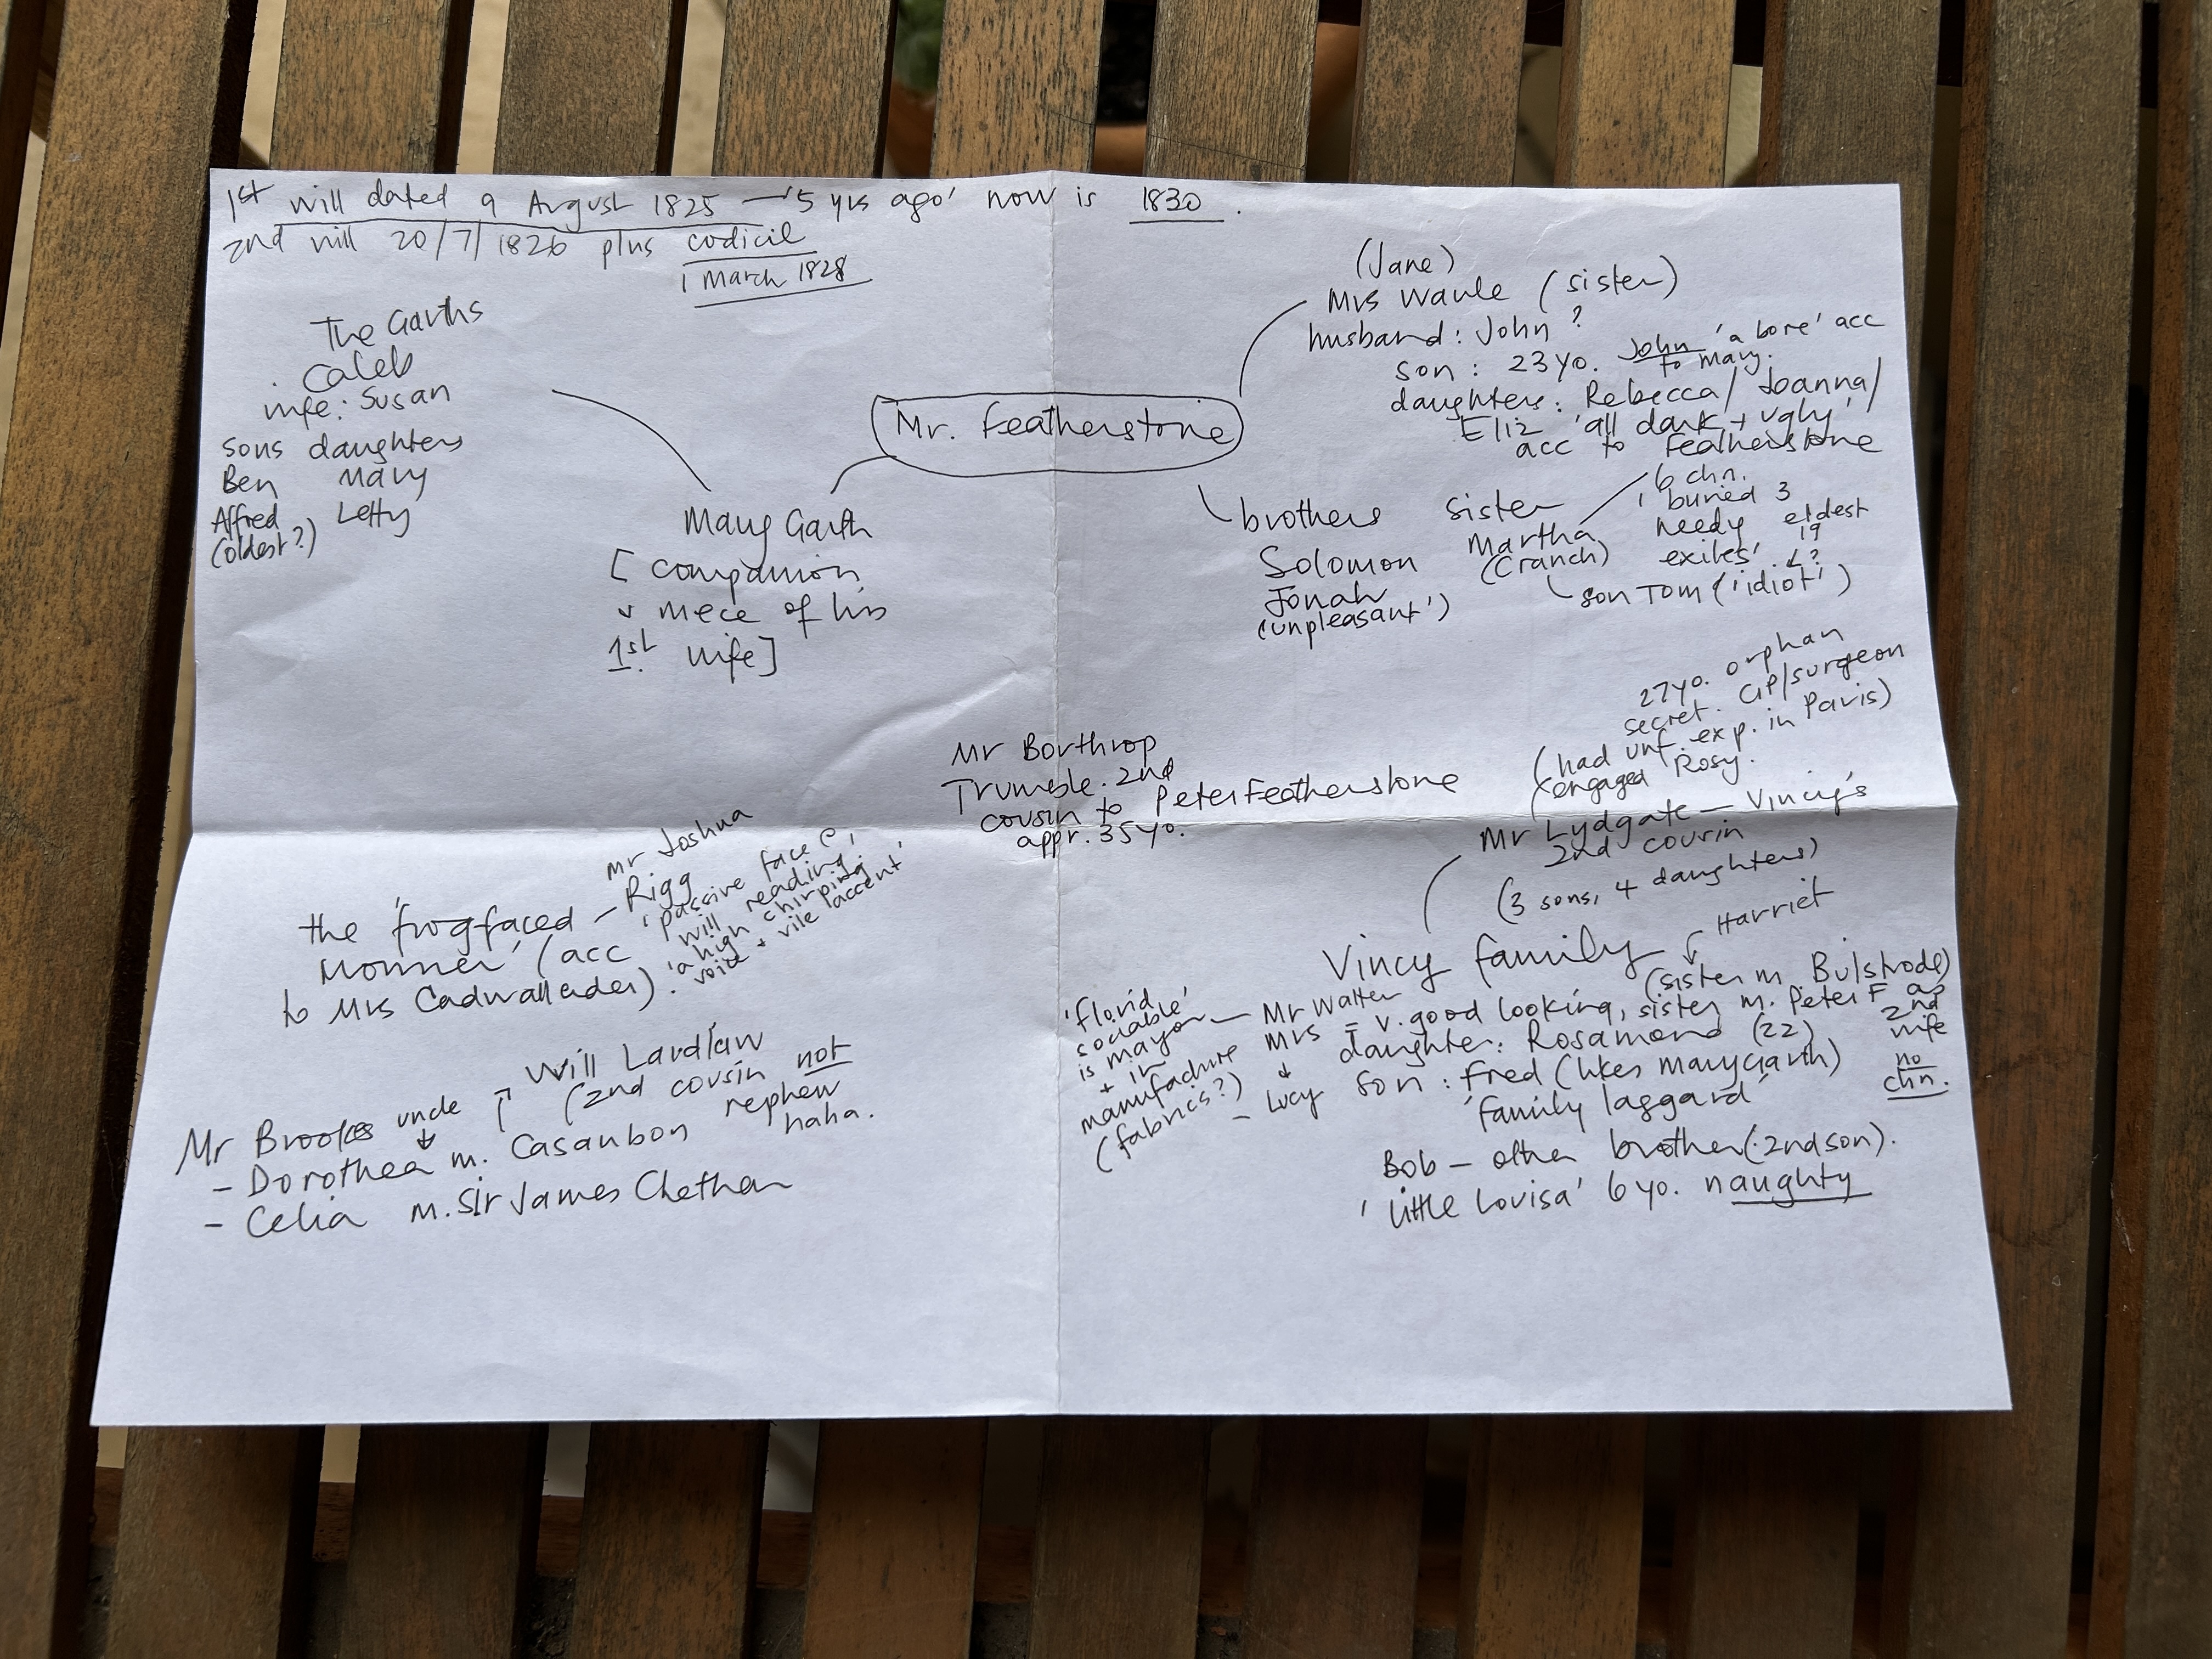 1st will dated 9 August 1825 → '5 yrs ago' now is 1830.
2nd will 20/7/1826 plus codicil
1 March 1828
The Garths
Caleb
wife: Susan
sons daughters
Ben Mary
Alfred Letty
(oldest?)
Mr. Featherstone
Mary Garth
[companion
+ niece of his
1st wife]
(Jane)
Mrs Waule (sister)
husband: John?
son: 23yo. John 'a bore' acc
to Mary.
daughters: Rebecca/Joanna/
Eliz 'all dark + ugly'
acc to Featherstone
brothers
Solomon
Jonah
(unpleasant')
sister
Martha
(Cranch)
6 chn.
1 buried 3
needy eldest
exiles' 19
son Tom ('idiot')
Mr Borthrop
Trumble. 2nd
cousin to Peter Featherstone
appr. 35yo.
27yo. orphan
secret. GP/surgeon
(had unf. exp. in Paris)
(engaged Rosy.
Mr Lydgate — Vincy's
2nd cousin
(3 sons, 4 daughters)
Vincy family
Harriet
(sister m. Bulstrode)
'florid,
sociable'
is mayor
+ in
manufacture
(fabrics?)
— Mr Walter
Mrs = v. good looking, sister m. Peter F as
2nd
wife
no
chn.
— Lucy
daughter: Rosamond (22)
son: Fred (likes Mary Garth)
'family laggard'
Bob — other brother (2nd son).
'little Lovisa' 6 yo. naughty
the 'frogfaced —
Monner' (acc
to Mrs Cadwallader).
Mr Joshua
Rigg
'passive face @
will reading,
'a high chirping
voice + vile accent'
Will Lardlaw
(2nd cousin not
nephew
haha.
Mr Brookes uncle
- Dorothea m. Casaubon
- Celia m. Sir James Chetham